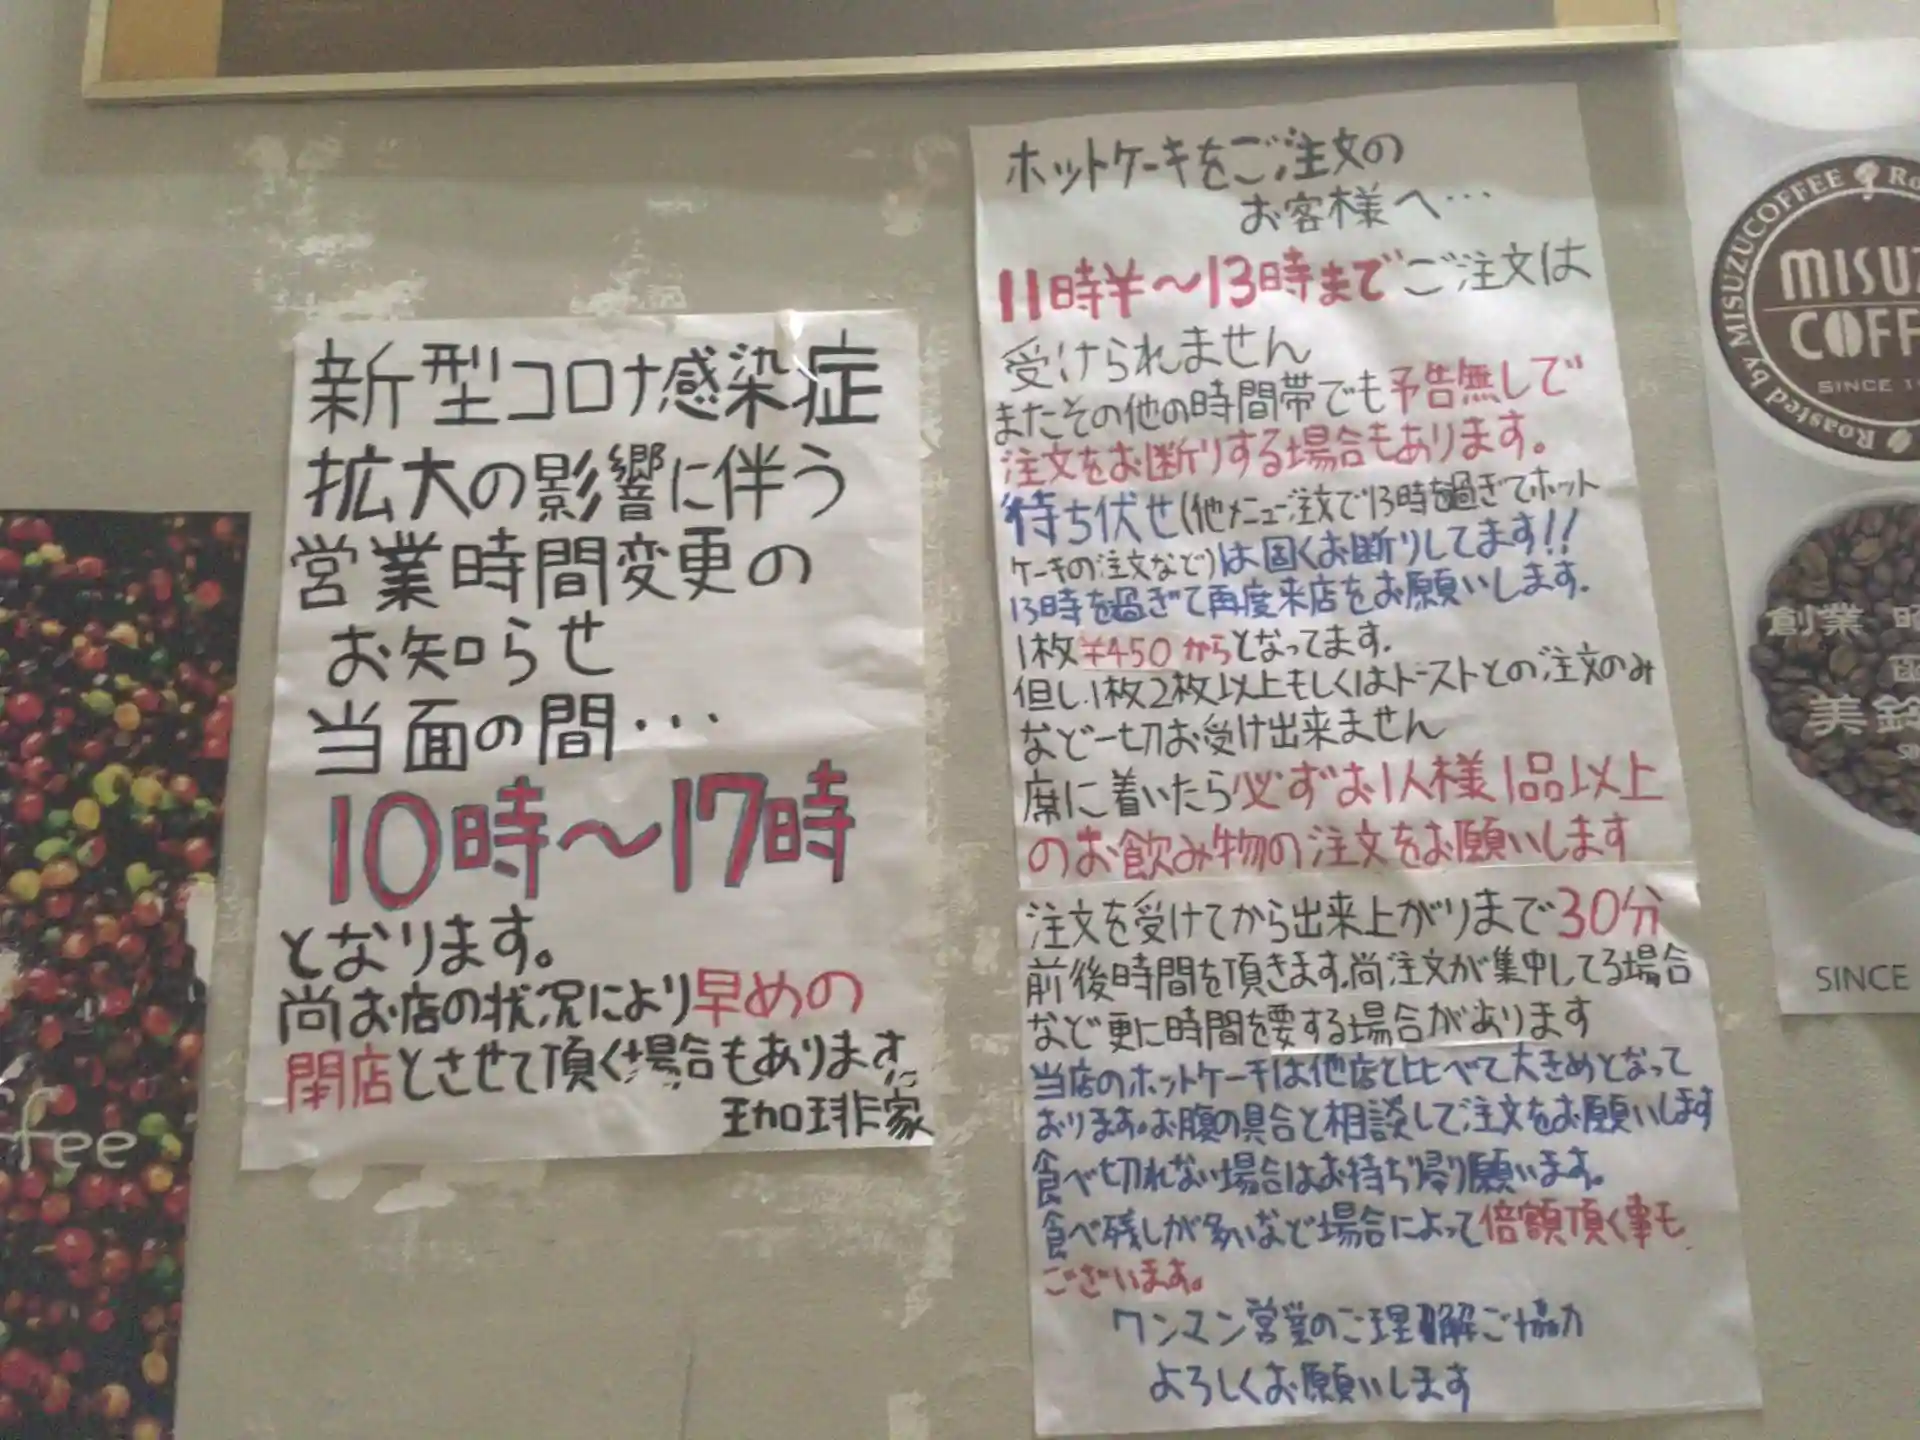 新型コロナ感染症
拡大の影響に伴う
営業時間変更の
お知らせ
当面の間・・・
10時〜17時
となります。
尚お店の状況により早めの
閉店とさせて頂く場合もあります。
珈琲家
ホットケーキをご注文の
お客様へ・・・
11時半〜13時までご注文は
受けられません
またその他の時間帯でも予告無しで
注文をお断りする場合もあります。
待ち伏せ(他メニュー注文で13時を過ぎてホット
ケーキの注文など)は固くお断りしてます!!
13時を過ぎて再度来店をお願いします.
1枚¥450からとなってます.
但し.1枚2枚以上もしくはトーストとのご注文のみ
など一切お受け出来ません
席に着いたら必ずお1人様1品以上
のお飲み物の注文をお願いします
注文を受けてから出来上がりまで30分
前後時間を頂きます.尚注文が集中してる場合
など更に時間を要する場合があります
当店のホットケーキは他店と比べて大きめとなって
おります。お腹の具合と相談してご注文をお願いします
食べ切れない場合はお持ち帰り願います。
食べ残しが多いなど場合によって倍額頂く事も
ございます。
ワンマン営業のご理解ご協力
よろしくお願いします
Roasted by MISUZUCOFFEE
MISUZ
COFF
SINCE 1
創業 昭
美鈴
SINCE
ffee